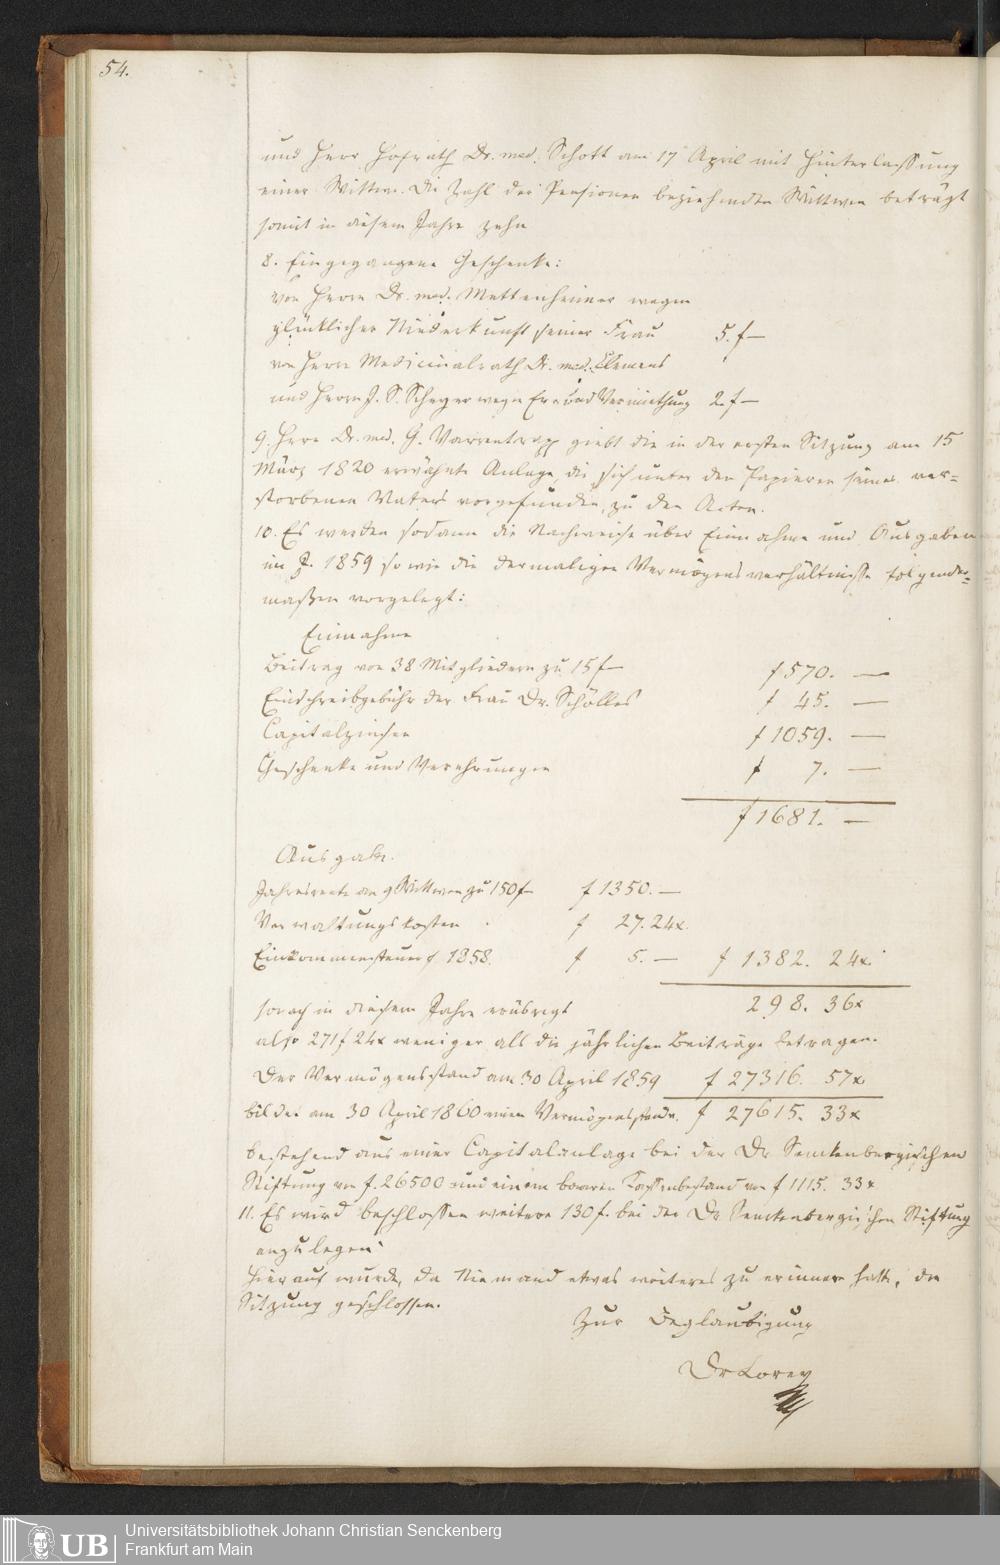 54.
und Herr Hofrath Dr. med. Schott am 17 April mit Hinterlassung
einer Wittwe. Die Zahl der Pensionen beziehenden Wittwen beträgt
somit in diesem Jahre zehn
8. Eingegangene Geschenke:
von Herrn Dr. med. Mettenheimer wegen
glücklicher Niederkunft seiner Frau 5. f —
von Herrn Medicinalrath Dr. med. Clemens
und Herrn J. S. Scheyer wegen Vermiethung 2. f —
9. Herr Dr. med. G. Varrentrapp giebt die in der ersten Sitzung am 15
März 1820 erwähnte Anlage, die sich unter den Papieren seines ver-
storbenen Vaters vorgefunden, zu den Acten.
10. Es werden sodann die Nachweise über Einnahme und Ausgaben
im J. 1859 so wie die dermaligen Vermögensverhältnisse folgender-
maßen vorgelegt:
Einnahme
Beitrag von 38 Mitgliedern zu 15 f — f 570. —
Einschreibgebühr der Frau Dr. Schölles f 45. —
Capitalzinsen f 1059. —
Geschenke und Verehrungen f 7. —
f 1681. —
Ausgabe.
Jahresrente an 9 Wittwen zu 150 f — f 1350. —
Verwaltungskosten f 27. 24x.
Einkommensteuer 1858. f 5. — f 1382. 24x.
sonach in diesem Jahre erübrigt 298. 36x
also 271 f 24x weniger als die jährlichen Beiträge betragen.
Der Vermögensstand am 30 April 1859 f 27316. 57x.
bildet am 30 April 1860 einen Vermögensstand v. f 27615. 33x
bestehend aus einer Capitalanlage bei der Dr. Senckenbergischen
Stiftung von f. 26500 und einem baaren Kassenbestand von f 1115. 33x
11. Es wird beschlossen weitere 130 f. bei der Dr. Senckenbergischen Stiftung
anzulegen.
Hierauf wurde, da Niemand etwas weiteres zu erinnern hatte, die
Sitzung geschlossen.
Zur Beglaubigung
Dr Lorey
UB
Universitätsbibliothek Johann Christian Senckenberg
Frankfurt am Main